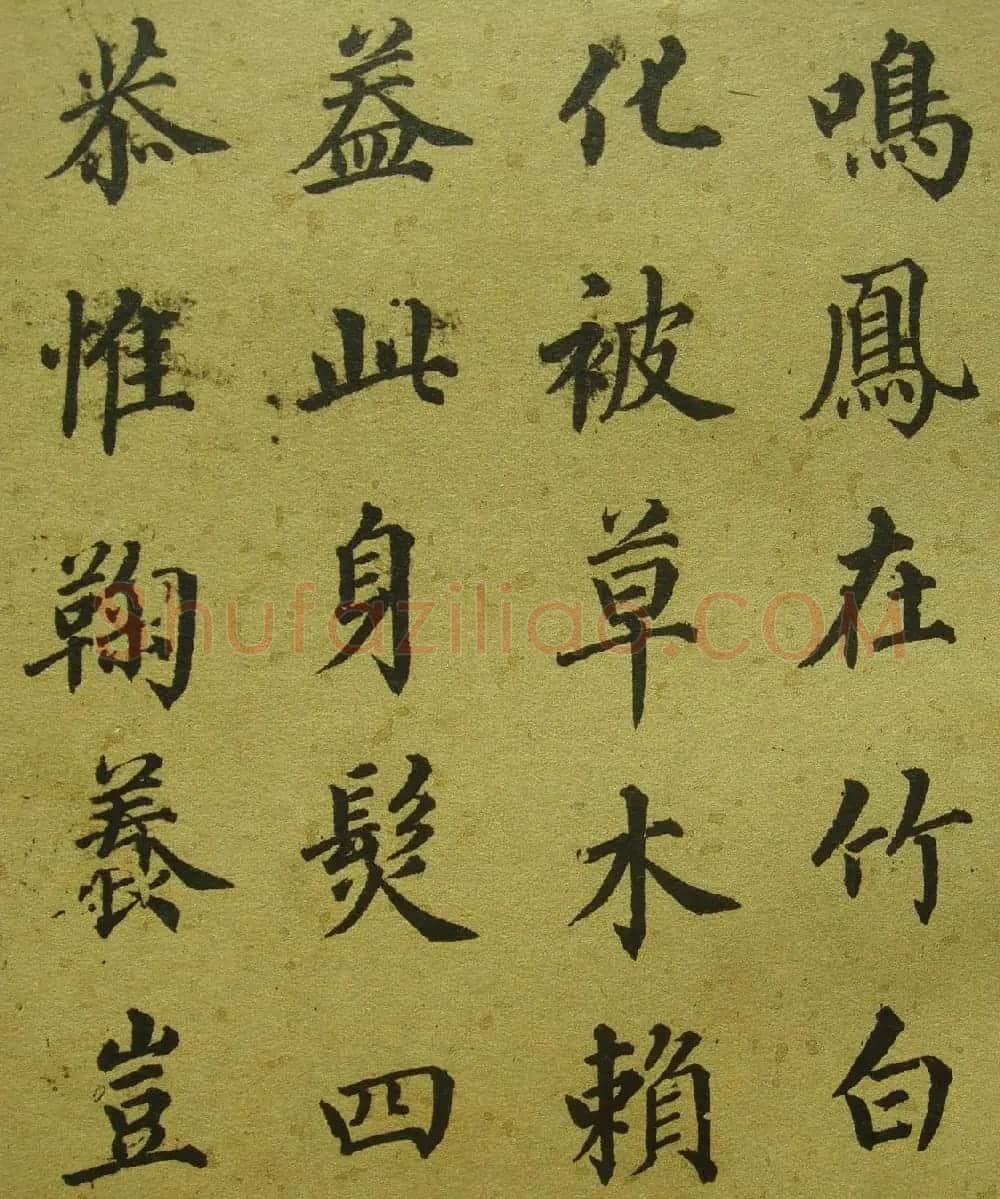 鳴鳳在竹白
化被草木賴
蓋此身髮四
恭惟鞠養豈
Shufaziliao.COM